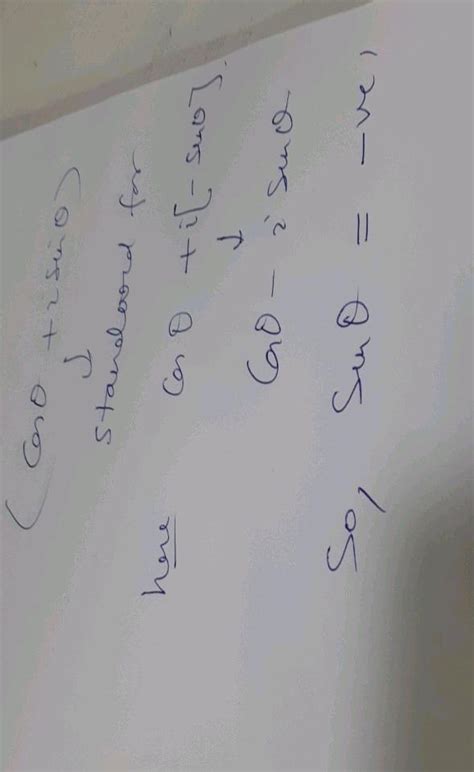 (Cosθ + i sinθ)
↓
standard for
here Cosθ + i[-sinθ].
↓
Cosθ - i sinθ
So, Sinθ = -ve,